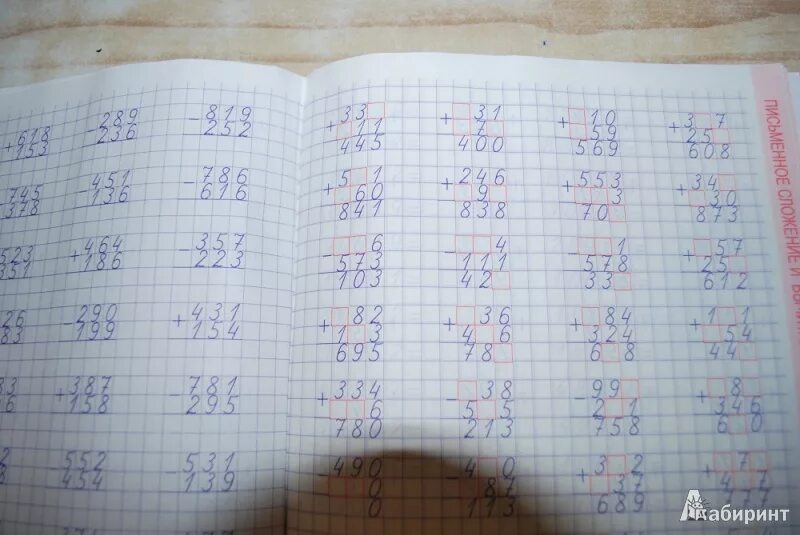 +618 -289 -819 +33□ +□31 +□10 +3□7
153 236 252 □11 □7□ □59 25□
445 400 569 608
745 451 -786 +5□1 +246 +553 +34□
378 136 616 □60 □9□ □□3 □30
841 838 70□ 873
523 +464 -357 -□□6 -□□4 -□□1 +□57
351 186 223 573 111 578 25□
103 42□ 33□ 612
26 -290 +431 +□82 +□36 +□84 +1□1
83 199 154 1□3 4□6 324 □54
695 78□ 6□8 44□
+387 -781 +334 -□38 -99□ +□8□
158 295 □□6 5□5 2□1 346
780 213 758 6□0
-552 -531 -490 -4□0 +3□2 +□7□
454 139 □□0 □87 □37
0 113 689 777
ПИСЬМЕННОЕ СЛОЖЕНИЕ И
Лабиринт